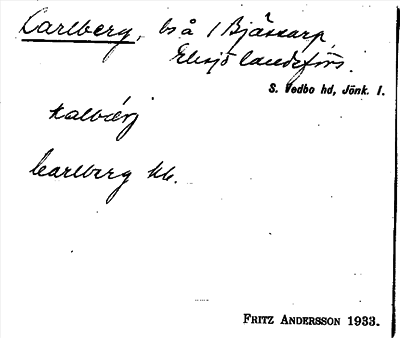 Karlberg, bs å 1 Bjäskarp,
Eksjö landsförs.
S. Vedbo hd, Jönk. l.
kalbærj
Carlberg hk.
FRITZ ANDERSSON 1933.